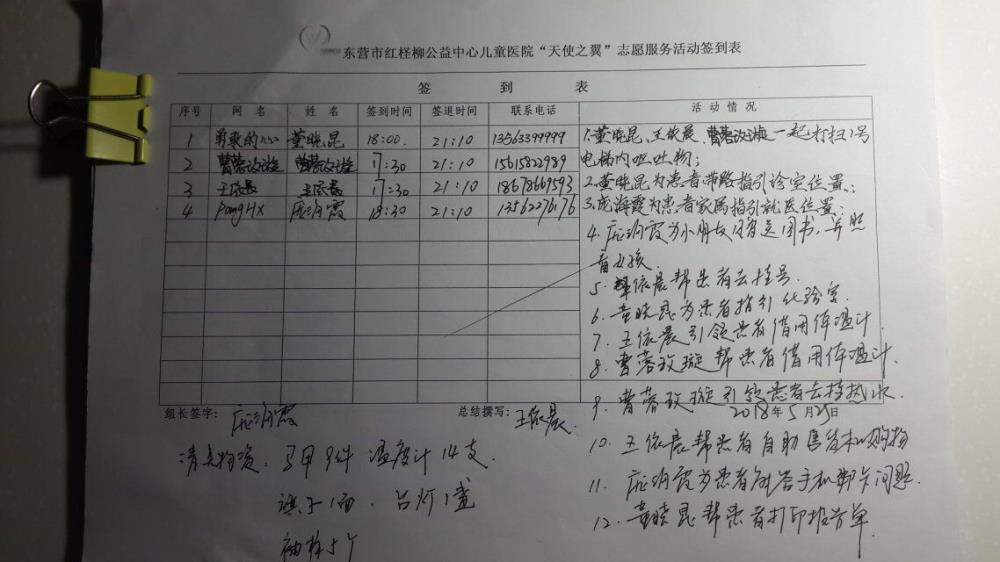 东营市红柽柳公益中心儿童医院“天使之翼”志愿服务活动签到表
签 到 表
序号 网名 姓名 签到时间 签退时间 联系电话 活动情况
1 勇敢的心 董晓昆 18:00 21:10 13563399999
2 曹蓉玫璇 曹蓉玫璇 17:30 21:10 15615822989
3 王依晨 王依晨 17:30 21:10 18678669593
4 PangHX 庞海霞 18:30 21:10 13562276176
1.董晓昆、王依晨、曹蓉玫璇一起打扫1号
电梯内呕吐物;
2.董晓昆为患者带路指引诊室位置;
3.庞海霞为患者家属指引就医位置;
4.庞海霞为小朋友阅读图书,并照
看女孩.
5.王依晨帮患者去挂号.
6.董晓昆为患者指引化验室.
7.王依晨引领患者借用体温计.
8.曹蓉玫璇帮患者借用体温计.
9.曹蓉玫璇引领患者去接热水
组长签字: 庞海霞 总结撰写: 王依晨. 2018年5月25日
10.王依晨帮患者自助售货机购物
11.庞海霞为患者解答手机绑卡问题.
12.董晓昆帮患者打印报告单
清点物资:马甲9件 温度计14支.
旗子1面.台灯1盏
袖标5个